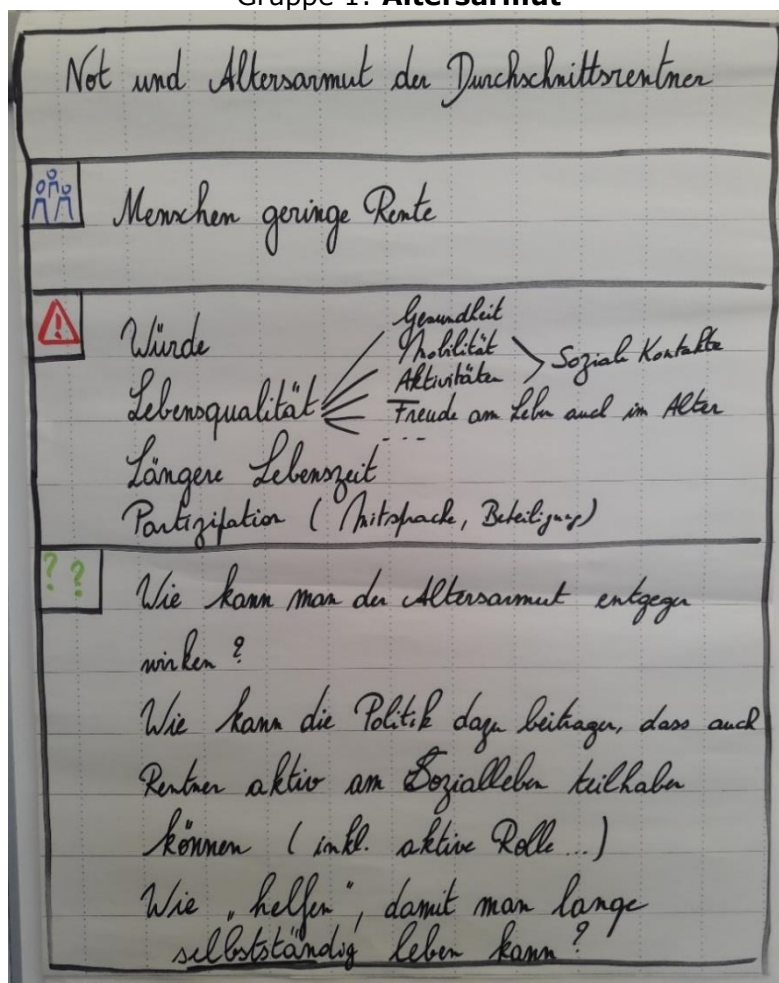 Gruppe 1: Altersarmut
Not und Altersarmut der Durchschnittsrentner
Menschen geringe Rente
Würde
Lebensqualität
Gesundheit
Mobilität
Aktivitäten
Soziale Kontakte
Freude am Leben auch im Alter
...
Längere Lebenszeit
Partizipation (Mitsprache, Beteiligung)
? ?
Wie kann man der Altersarmut entgegen
wirken ?
Wie kann die Politik dazu beitragen, dass auch
Rentner aktiv am Sozialleben teilhaben
können (inkl. aktive Rolle ...)
Wie „helfen", damit man lange
selbstständig leben kann ?